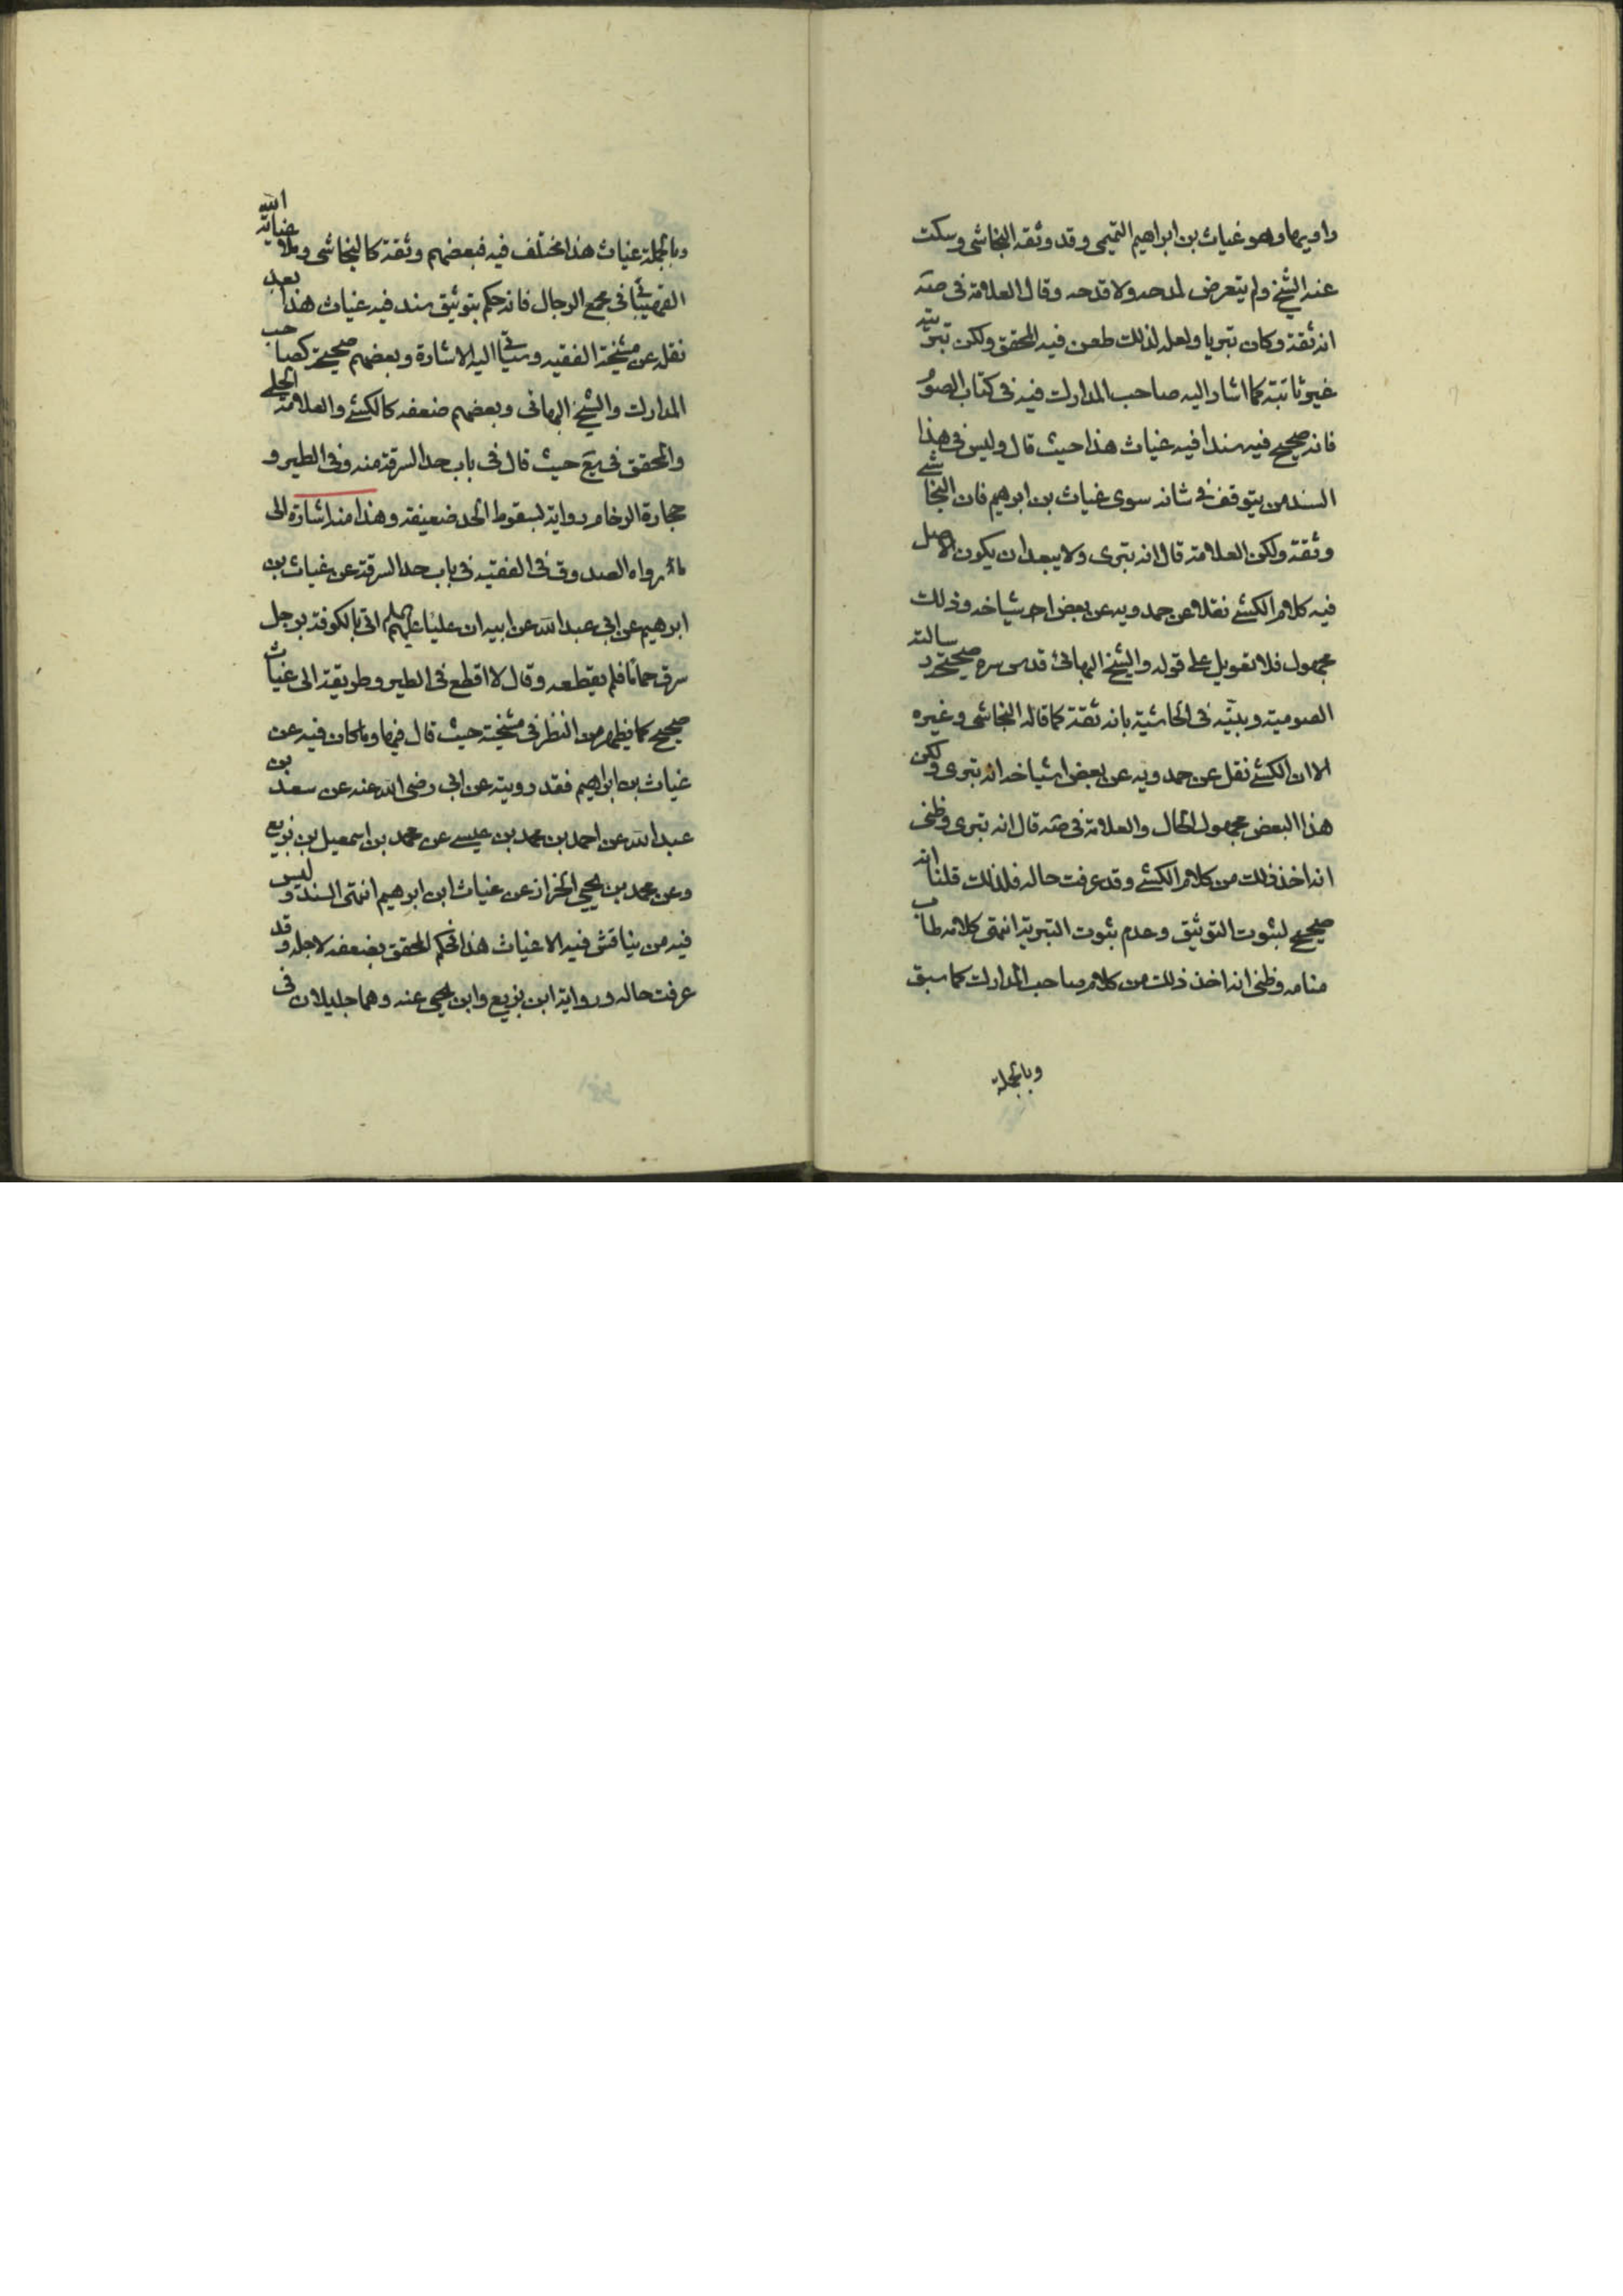 راويها وهو غياث بن ابراهيم التميمى وقد وثقه النجاشى وسكت
عنه الشيخ ولم يتعرض لمدحه ولا قدحه وقال العلامة فى صه
انه ثقة وكان بتريا ولعله لذلك طعن فيه المحقق ولكن تبريته
غير ثابتة كما اشار اليه صاحب المدارك فيه فى كتاب الصوم
فانه صحيح فيه سندا فيه غياث هذا حيث قال وليس فى هذا
السند من يتوقف فى شانه سوى غياث بن ابرهيم فان النجاشے
وثقه ولكن العلامة قال انه بترى ولا يبعد ان يكون الاصل
فيه كلام الكشے نقلا عن حمدويه عن بعض اشياخه وذلك
مجهول فلا تعويل على قوله والشيخ البهائى قدس سره صحيح رسالته
الصومية وبينه فى الحاشية بانه ثقة كما قاله النجاشى وغيره
الا ان الكشے نقل عن حمدويه عن بعض اشياخه انه بترى ولكن
هذا البعض مجهول الحال والعلامة فى صه قال انه بترى وظنى
انه اخذ ذلك من كلام الكشے وقد عرفت حاله فلذلك قلنا انه
صحيح لثبوت التوثيق وعدم ثبوت التبرية انتهى كلامه طاب
منامه وظنى انه اخذ ذلك من كلام صاحب المدارك كما سبق
وبالجملة
وبالجملة غياث هذا مختلف فيه فبعضهم وثقة كالنجاشى وملا عناية الله
القهپائى فى مجمع الرجال فانه حكم بتوثيق سند فيه غياث هذا بعد
نقله عن مشيخة الفقيه وسياتى اليه الاشارة وبعضهم صحيحة كصاحب
المدارك والشيخ البهائى وبعضهم ضعفه كالكشے والعلامة الحلے
والمحقق فى يع حيث قال فى باب حد السرقة منه وفى الطير و
حجارة الرخام رواية لسقوط الحد ضعيفة وهذا منه اشارة الى
ما رواه الصدوق فى الفقيه فى باب حد السرقة عن غياث بن
ابرهيم عن ابى عبد الله عن ابيه ان عليا عليهم اتى بالكوفة برجل
سرق حماما فلم يقطعه وقال لا اقطع فى الطير وطريقة الى غياث
صحيح كما يظهر من النظر فى مشيخته حيث قال فيها وما كان فيه عن
غياث بن ابراهيم فقد رويته عن ابى رضى الله عنه عن سعد بن
عبد الله عن احمد بن محمد بن عيسے عن محمد بن اسمعيل بن بزيع
وعن محمد بن يحيى الخزاز عن غياث ابن ابرهيم انتهى السند وليس
فيه من يناقش فيه الا غياث هذا فحكم المحقق بضعفه لاجله وقد
عرفت حاله ورواية ابن بزيع وابن يحيى عنه وهما جليلان فى